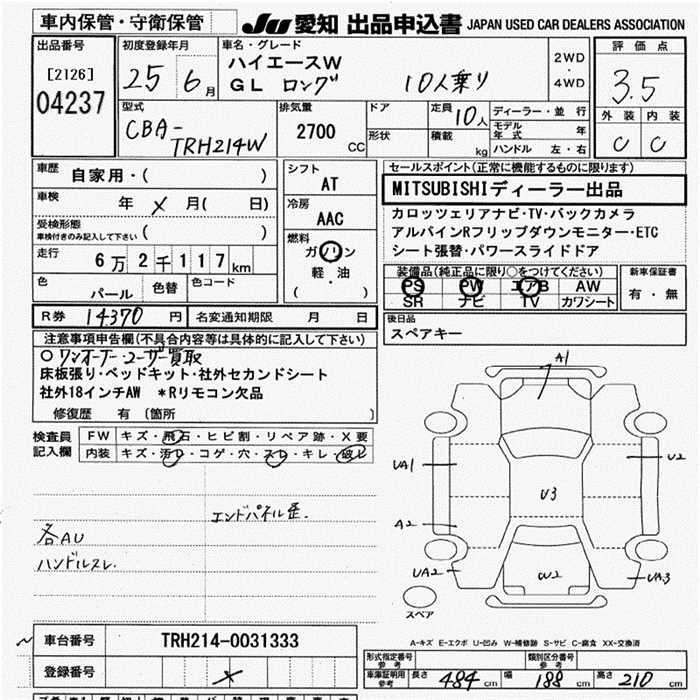 車内保管・守衛保管 JU 愛知 出品申込書 JAPAN USED CAR DEALERS ASSOCIATION
出品番号 [2126] 04237
初度登録年月 25 6月
車名・グレード ハイエースW
GL ロング 10人乗り
2WD・4WD
評価点 3.5
外装 内装
C C
型式 CBA-TRH214W
排気量 2700 CC
ドア 形状
定員 10人 積載 kg
ディーラー・並行
モデル年式 年
ハンドル 左・右
車歴 自家用・( )
車検 年 × 月( 日)
受検形態 車検付きのみ記入して下さい ( )
走行 6万2千117km
色 パール 色替 色コード
シフト AT
冷房 AAC
燃料 ガソリン 軽・油 ( )
セールスポイント(正常に機能するものに限ります)
MITSUBISHIディーラー出品
カロッツェリアナビ・TV・バックカメラ
アルパインRフリップダウンモニター・ETC
シート張替・パワースライドドア
装備品(純正品に限り○をつけてください)
PS PW エアB AW
SR ナビ TV カワシート
新車保証書 有・無
R券 14370 円 名変通知期限 月 日
後日品
スペアキー
注意事項申告欄(不具合内容等は具体的に記入して下さい)
○ワンオーナー・ユーザー買取
床板張り・ベッドキット・社外セカンドシート
社外18インチAW *Rリモコン欠品
修復歴 有 〔箇所 〕
検査員記入欄
FW キズ・飛石・ヒビ割・リペア跡・X要
内装 キズ・汚レ・コゲ・穴・スレ・キレ・破レ
エンドパネル歪.
各AU
ハンドルスレ.
A1
UA1
U2
U3
A2
UA2
W2
UA3
スペア
A-キズ E-エクボ U-凹み W-補修跡 S-サビ C-腐食 XX-交換済
車台番号 TRH214-0031333
登録番号 ×
形式指定番号 参考 類別区分番号 参考
車庫証明用 参考 長さ 484 cm 幅 188 cm 高さ 210 cm